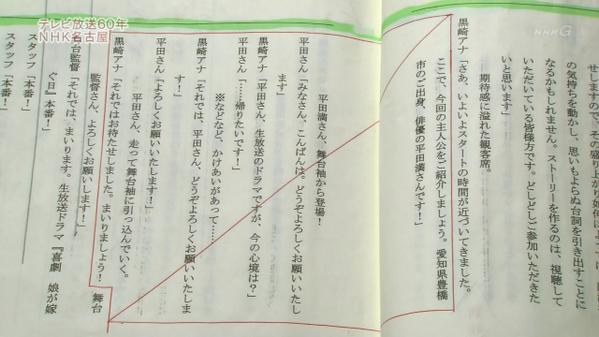 テレビ放送60年
NHK名古屋
NHK G
せしますので、その盛り上がり如何は
の気持ちを動かし、思いもよらぬ台詞を引き出すことに
なるかもしれません。ストーリーを作るのは、視聴して
いただいている皆様方です。どしどしご参加いただきた
いと思います」
期待感に溢れた観客席。
黒崎アナ「さあ、いよいよスタートの時間が近づいてきました。
ここで、今回の主人公をご紹介しましょう。愛知県豊橋
市のご出身、俳優の平田満さんです！」
平田満さん、舞台袖から登場！
平田さん「みなさん、こんばんは。どうぞよろしくお願いいたし
ます」
黒崎アナ「平田さん、生放送のドラマですが、今の心境は？」
平田さん「……帰りたいです！」
※などなど、かけあいがあって……
黒崎アナ「それでは、平田さん、どうぞよろしくお願いいたしま
す！」
平田さん「よろしくお願いいたします！」
平田さん、走って舞台袖に引っ込んでいく。
黒崎アナ「それではお待たせしました。まいりましょう！　舞台
監督さん、よろしくお願いします！」
台監督「それでは、まいります。生放送ドラマ『喜劇　娘が嫁
ぐ日』本番！」
スタッフ「本番！」
スタッフ「本番！」